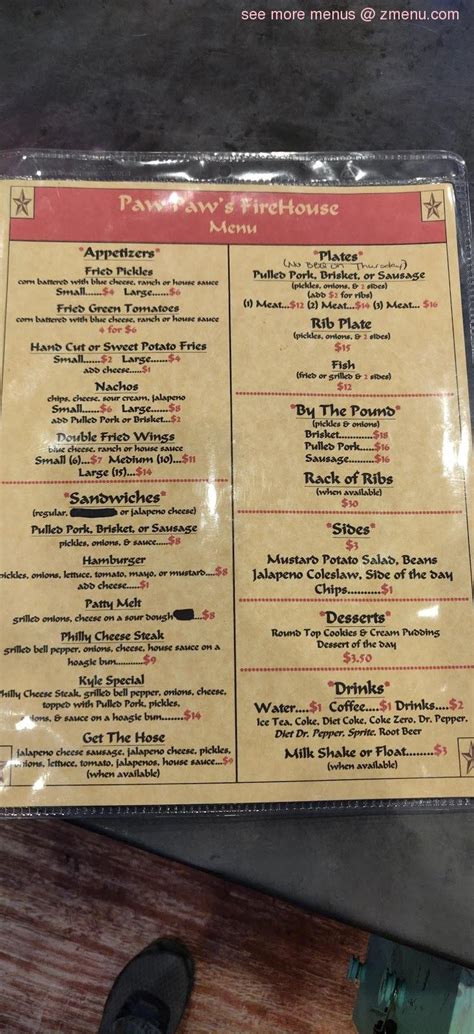 see more menus @ zmenu.com
Paw Paw's FireHouse
Menu
*Appetizers*
Fried Pickles
corn battered with blue cheese, ranch or house sauce
Small......$4 Large......$6
Fried Green Tomatoes
corn battered with blue cheese, ranch or house sauce
4 for $6
Hand Cut or Sweet Potato Fries
Small......$2 Large......$4
add cheese.....$1
Nachos
chips, cheese, sour cream, jalapeno
Small......$6 Large......$8
add Pulled Pork or Brisket...$2
Double Fried Wings
blue cheese, ranch or house sauce
Small (6)...$7 Medium (10)...$11
Large (15)...$14
*Sandwiches*
(regular, or jalapeno cheese)
Pulled Pork, Brisket, or Sausage
pickles, onions, & sauce.....$8
Hamburger
pickles, onions, lettuce, tomato, mayo, or mustard....$8
add cheese.....$1
Patty Melt
grilled onions, cheese on a sour dough ...$8
Philly Cheese Steak
grilled bell pepper, onions, cheese, house sauce on a
hoagie bun...........$9
Kyle Special
Philly Cheese Steak, grilled bell pepper, onions, cheese,
topped with Pulled Pork, pickles,
onions, & sauce on a hoagie bun........$14
Get The Hose
jalapeno cheese sausage, jalapeno cheese, pickles,
onions, lettuce, tomato, jalapenos, house sauce...$9
(when available)
*Plates*
(No BBQ on Thursday)
Pulled Pork, Brisket, or Sausage
(pickles, onions, & 2 sides)
(add $2 for ribs)
(1) Meat...$12 (2) Meat...$14 (3) Meat... $16
Rib Plate
(pickles, onions, & 2 sides)
$15
Fish
(fried or grilled & 2 sides)
$12
*By The Pound*
(pickles & onions)
Brisket...........$18
Pulled Pork.....$16
Sausage.........$16
Rack of Ribs
(when available)
$30
*Sides*
$3
Mustard Potato Salad, Beans
Jalapeno Coleslaw, Side of the day
Chips..........$1
*Desserts*
Round Top Cookies & Cream Pudding
Dessert of the day
$3.50
*Drinks*
Water....$1 Coffee....$1 Drinks....$2
Ice Tea, Coke, Diet Coke, Coke Zero, Dr. Pepper,
Diet Dr. Pepper, Sprite, Root Beer
Milk Shake or Float........$3
(when available)